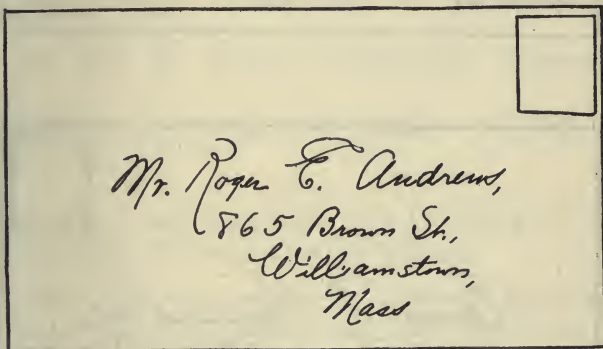 Mr. Roger E. Andrews,
865 Brown St.,
Williamstown,
Mass